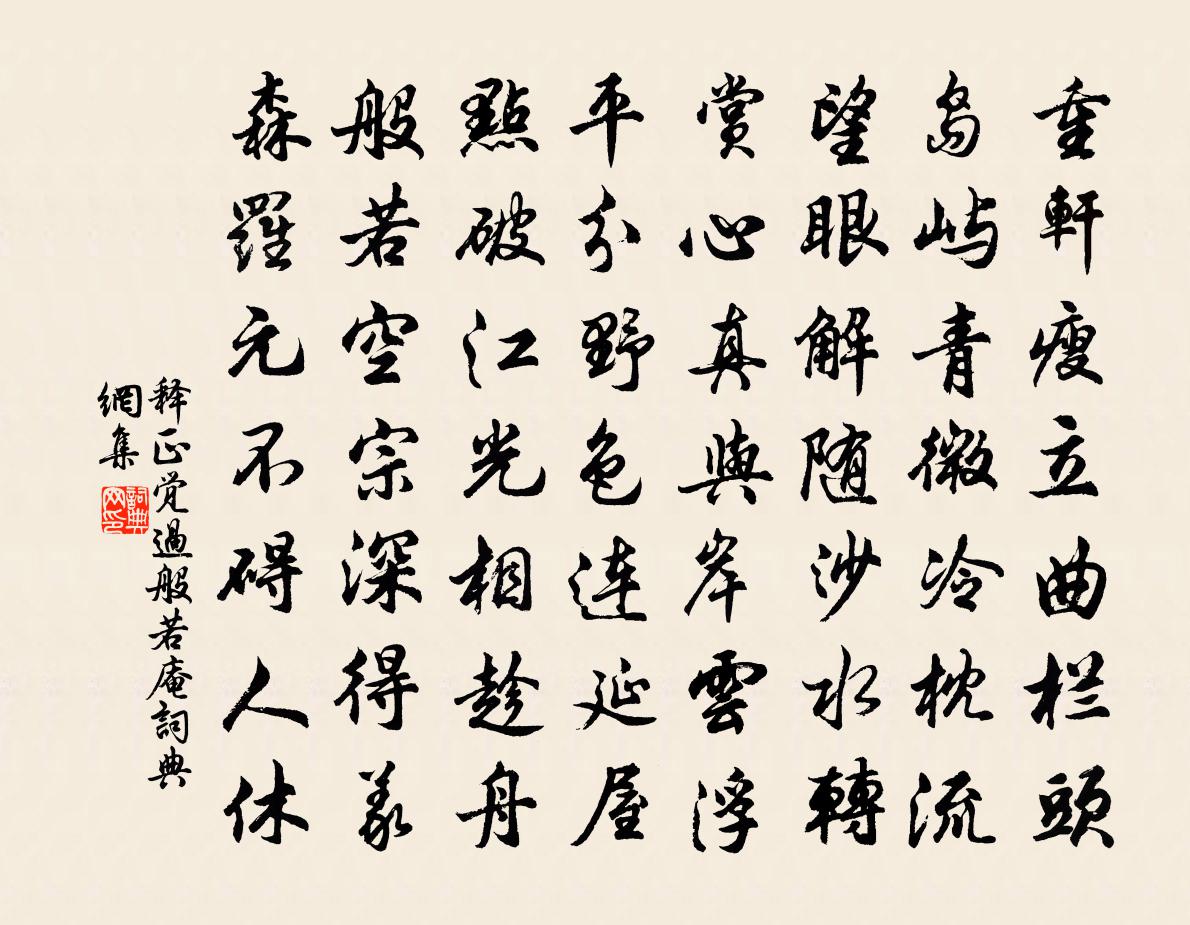 重軒瘦立曲栏頭
島屿青微冷枕流
望眼解随沙水轉
賞心真與岸雲浮
平分野色連延屋
點破江光相趁舟
般若空宗深得义
森羅元不碍人休
释正觉過般若庵詞典
網集
詞典
网印